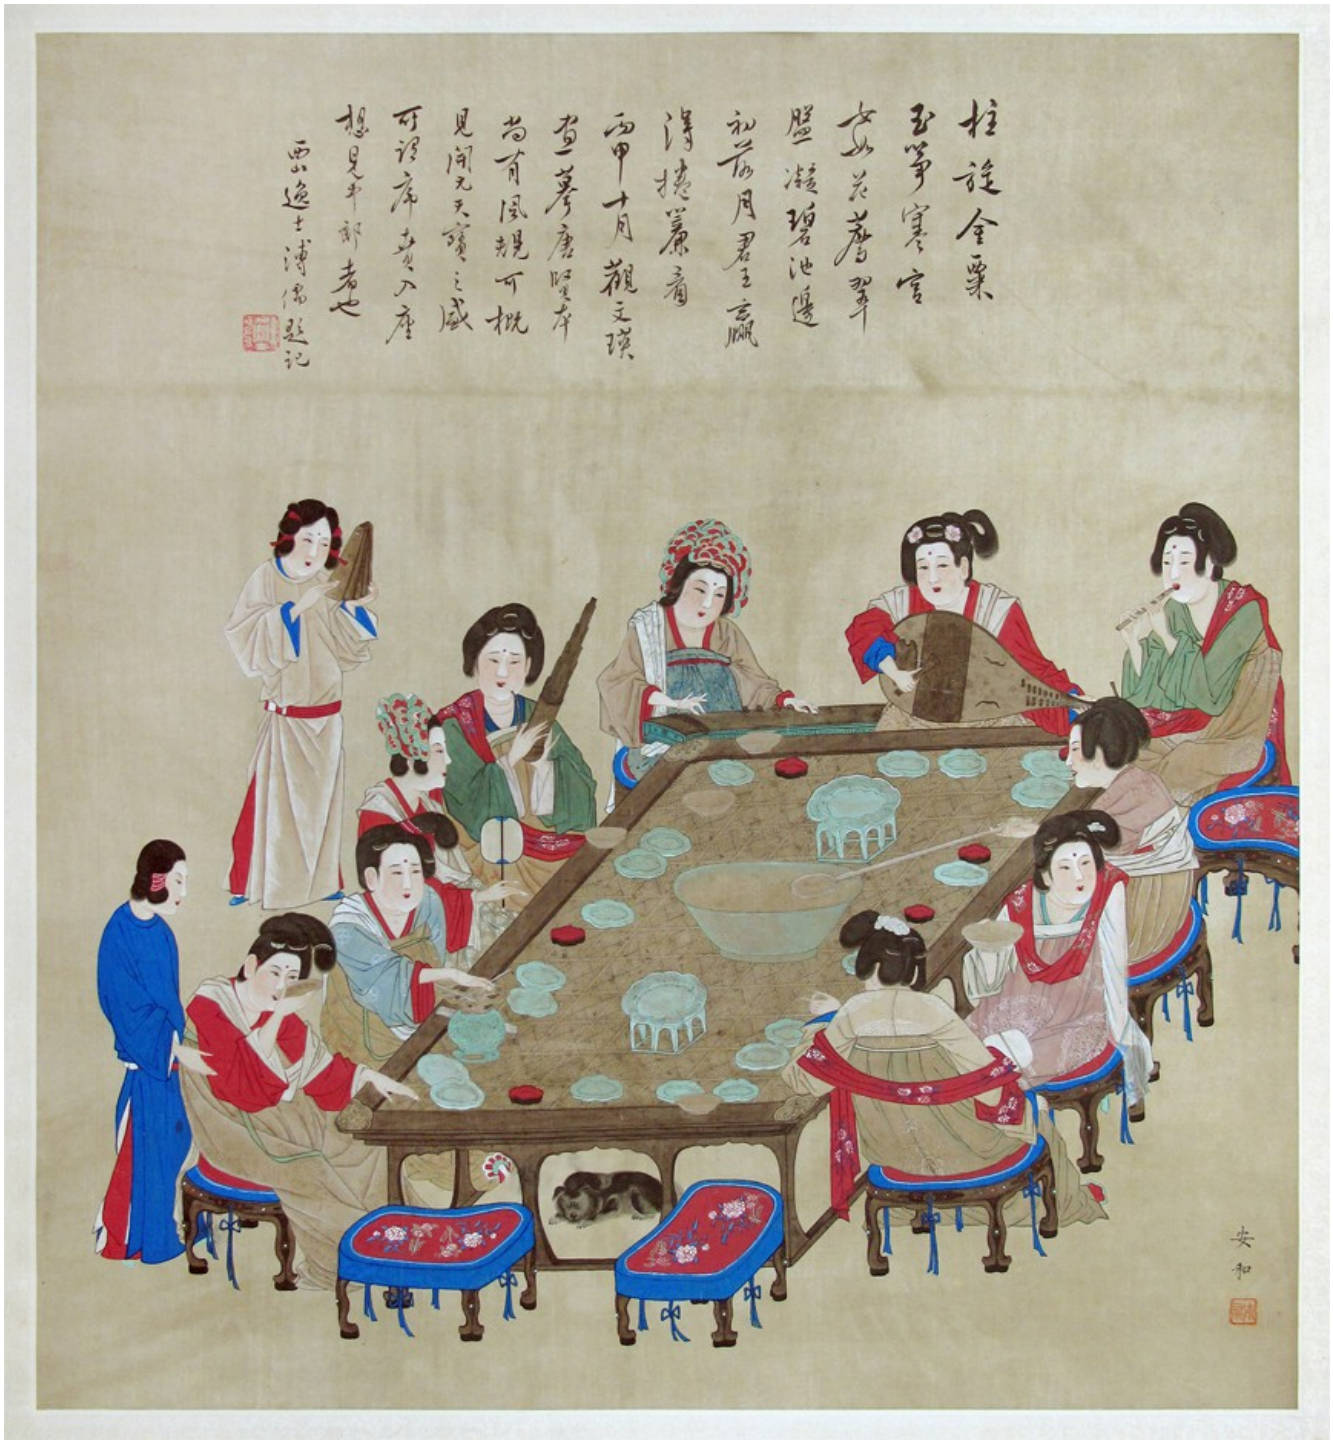 柱旋金粟
玉箏寒宮
女如花薦翠
盤凝碧池邊
初落月君王贏
得捲簾看
丙申十月觀文瑛
畫摹唐賢本
尚有風規可概
見開元天寶之盛
可謂虎賁入座
想見中郎者也
西山逸士溥儒題記
安和